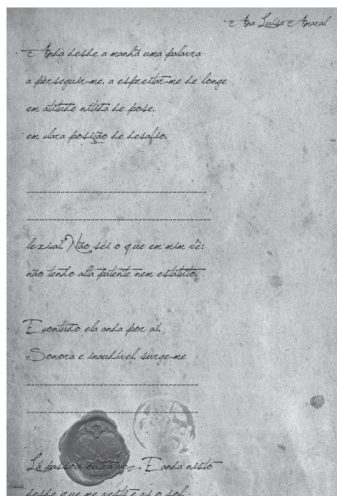 Ana Luísa Amaral
Anda desde a manhã uma palavra
a perseguir-me, a espreitar-me de longe
em atitude nítida de pose,
em clara posição de desafio.
lexical. Não sei o que em mim vê:
não tenho alta patente nem estatuto.
E contudo ela anda por aí,
Sonora e inaudível surge-me
Lá passou outra vez. E anda nisto
desde que me vesti e vi o sol.